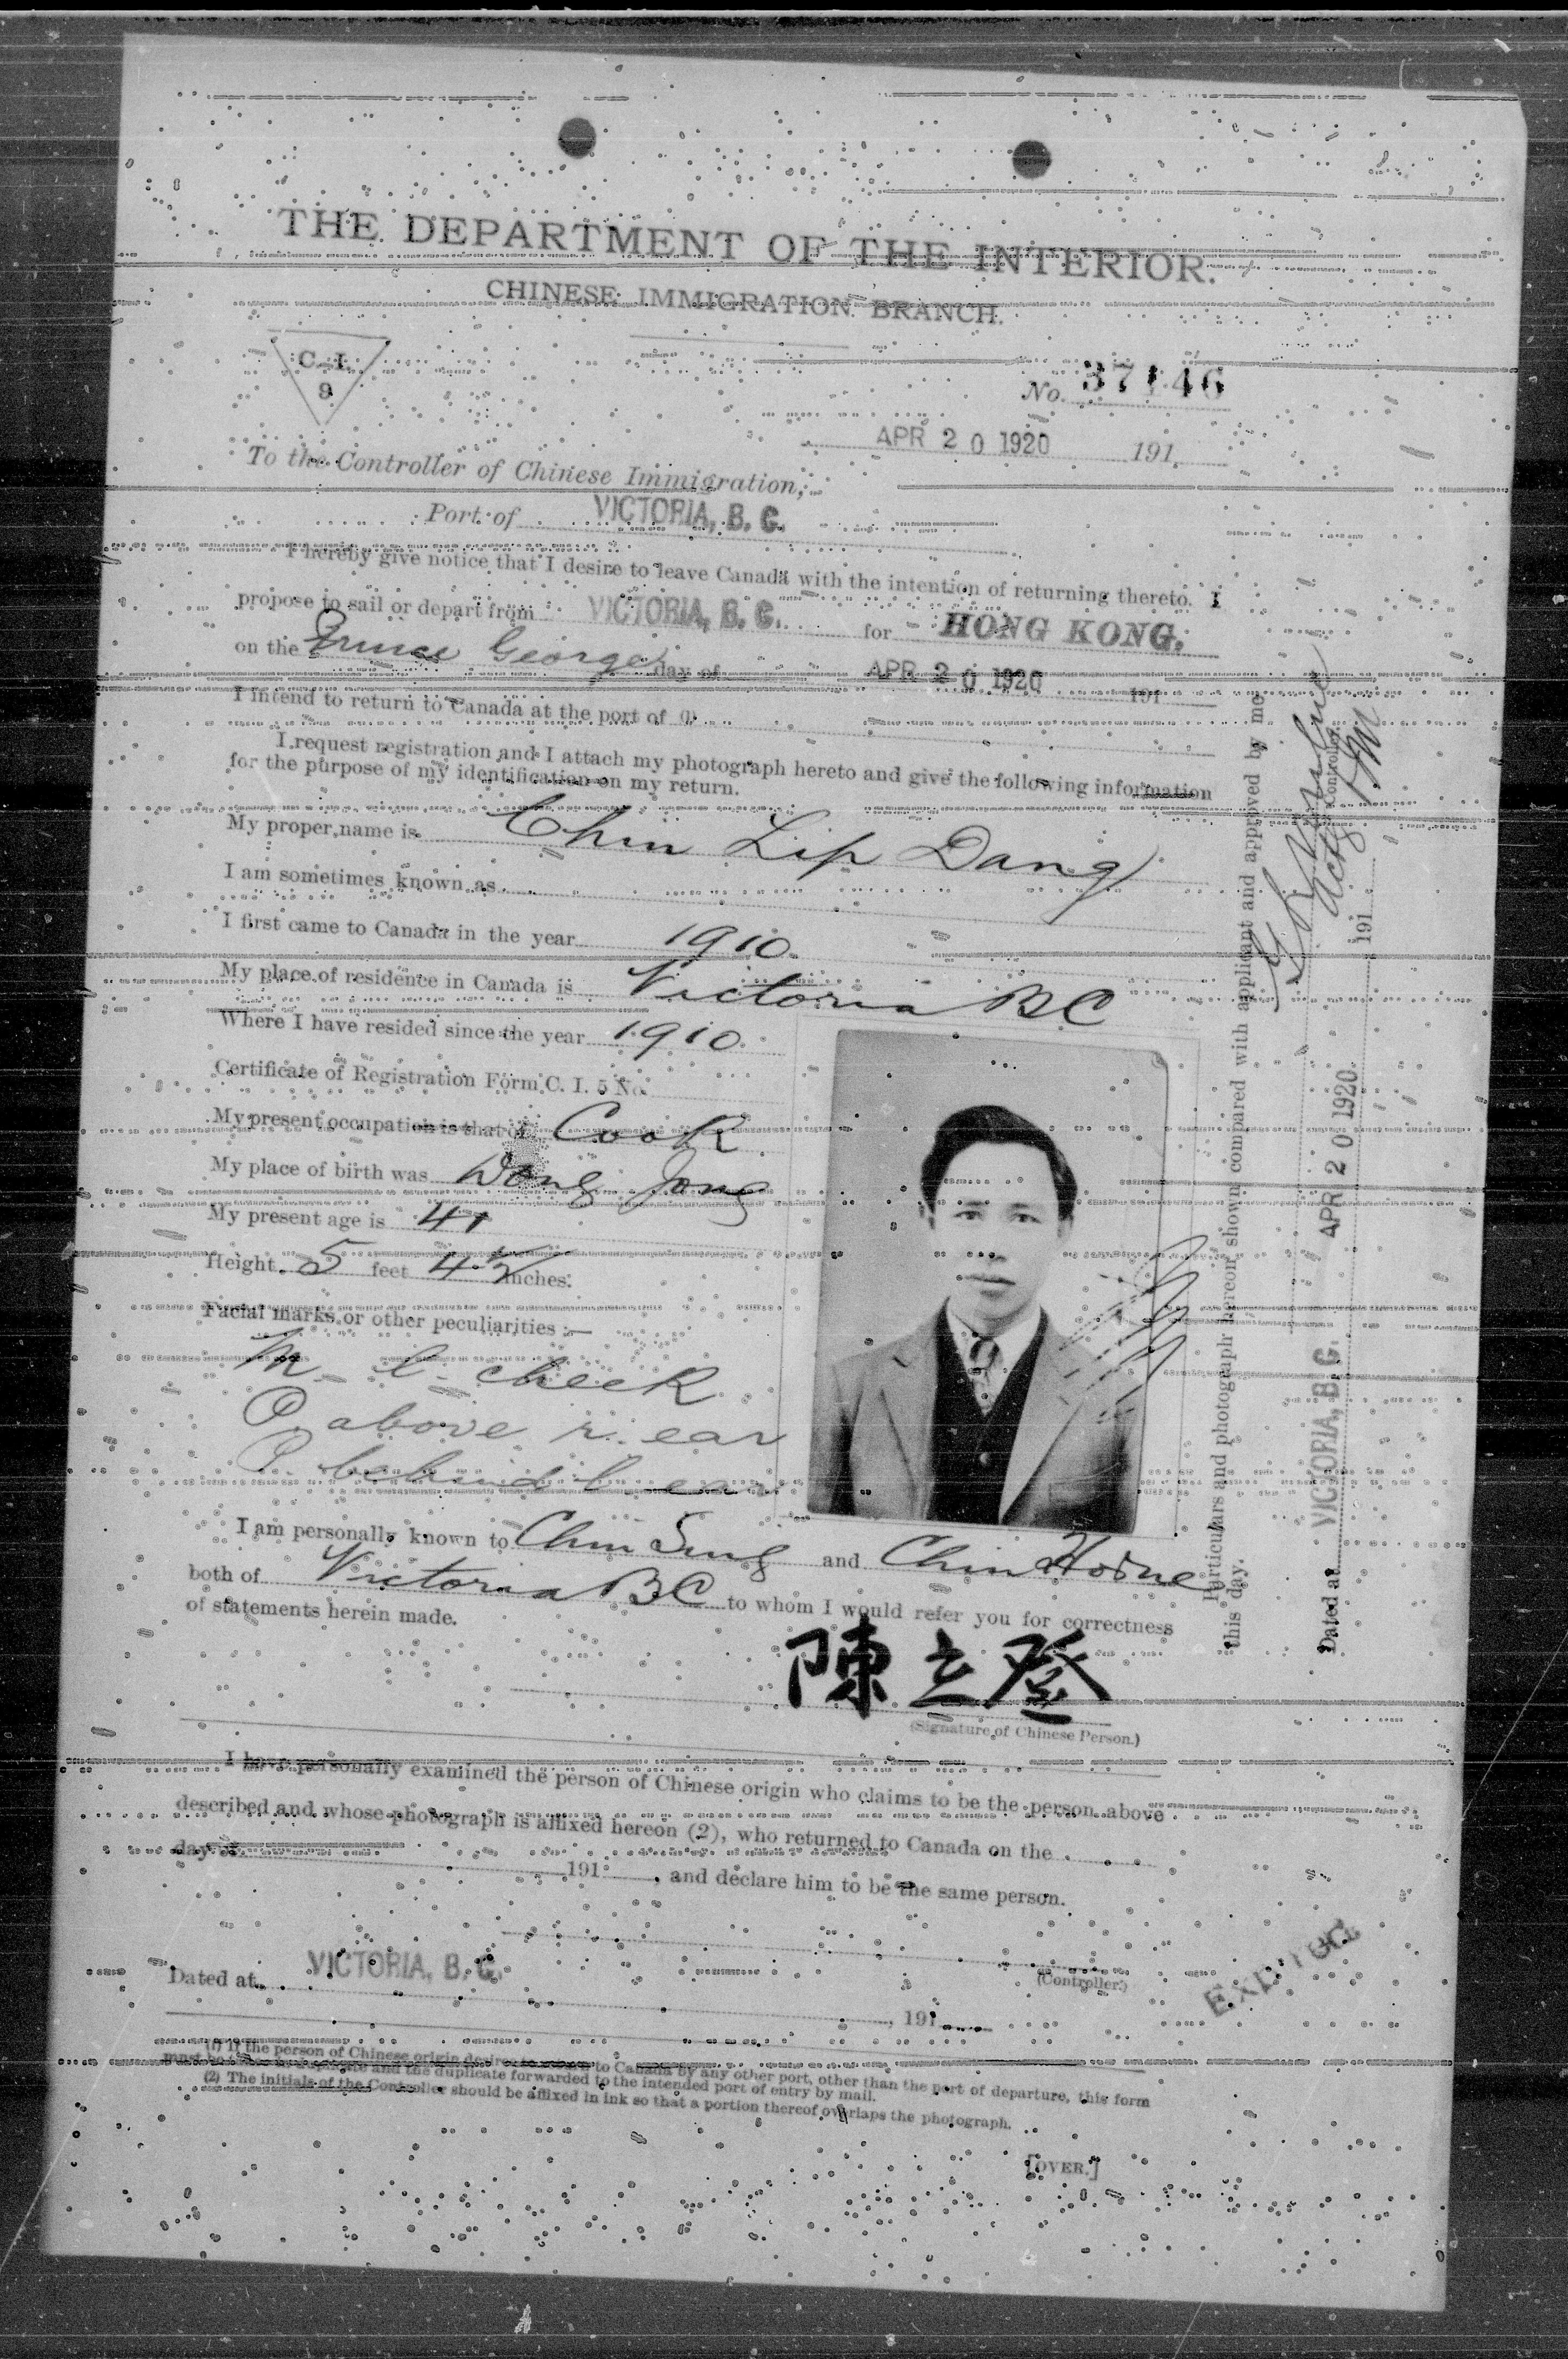 THE DEPARTMENT OF THE INTERIOR.
CHINESE IMMIGRATION BRANCH.
C. I.
9
No. 37146
APR 20 1920 191
To the Controller of Chinese Immigration,
Port of VICTORIA, B. C.
I hereby give notice that I desire to leave Canada with the intention of returning thereto. I
propose to sail or depart from VICTORIA, B. C. for HONG KONG.
on the Prince George day of APR 20 1920 191
I intend to return to Canada at the port of
I request registration and I attach my photograph hereto and give the following information
for the purpose of my identification on my return.
My proper name is Chin Lip Dang
I am sometimes known as
I first came to Canada in the year 1910.
My place of residence in Canada is Victoria BC
Where I have resided since the year 1910.
Certificate of Registration Form C. I. 5 No.
My present occupation is that of Cook
My place of birth was Wong Jong
My present age is 41
Height 5 feet 4 1/2 inches.
Facial marks or other peculiarities :—
M. l. cheek
P. above r. ear
P. behind l. ear
I am personally known to Chin Sung and Chin Horne
both of Victoria BC to whom I would refer you for correctness
of statements herein made.
陳立登
(Signature of Chinese Person.)
I have personally examined the person of Chinese origin who claims to be the person above
described and whose photograph is affixed hereon (2), who returned to Canada on the
day of 191 , and declare him to be the same person.
(Controller.)
Dated at VICTORIA, B. C.
, 191
(1) If the person of Chinese origin desires to return to Canada by any other port, other than the port of departure, this form
must be and the duplicate forwarded to the intended port of entry by mail.
(2) The initials of the Controller should be affixed in ink so that a portion thereof overlaps the photograph.
[OVER.]
Particulars and photograph hereon shown compared with applicant and approved by me
this day.
Actg Controller.
Dated at VICTORIA, B. C. APR 20 1920 191